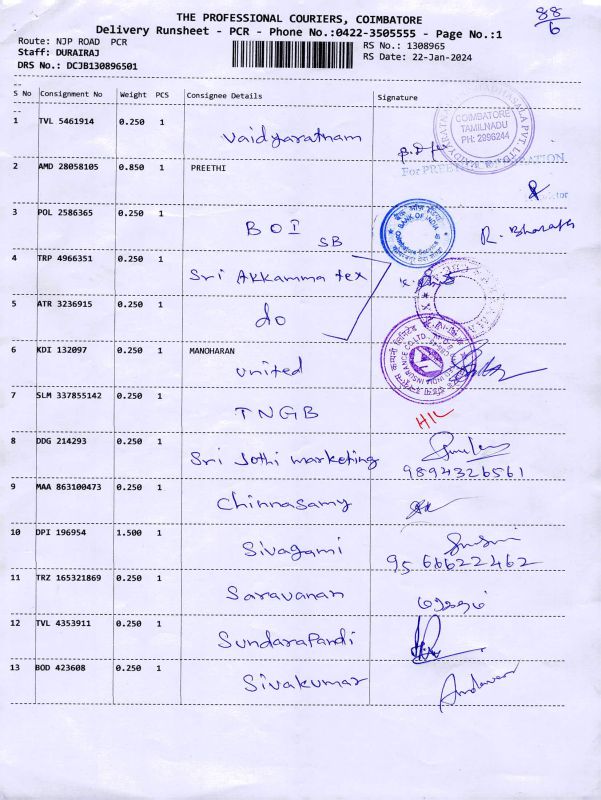 88
6
THE PROFESSIONAL COURIERS, COIMBATORE
Delivery Runsheet - PCR - Phone No.:0422-3505555 - Page No.:1
Route: NJP ROAD PCR
RS No.: 1308965
Staff: DURAIRAJ
RS Date: 22-Jan-2024
DRS No.: DCJB130896501
S No Consignment No Weight PCS Consignee Details Signature
1 TVL 5461914 0.250 1 Vaidyaratnam
COIMBATORE
TAMILNADU
PH: 2996244
2 AMD 28058105 0.850 1 PREETHI
For
3 POL 2586365 0.250 1 BOI SB R. Bharath
BANK OF INDIA
4 TRP 4966351 0.250 1 Sri Akkamma tex
5 ATR 3236915 0.250 1 do
6 KDI 132097 0.250 1 MANOHARAN
United
7 SLM 337855142 0.250 1 TNGB
8 DDG 214293 0.250 1 Sri Jothi marketing
9894326561
9 MAA 863100473 0.250 1 Chinnasamy
10 DPI 196954 1.500 1 Sivagami
9566622462
11 TRZ 165321869 0.250 1 Saravanan
12 TVL 4353911 0.250 1 Sundarapandi
13 BOD 423608 0.250 1 Sivakumar